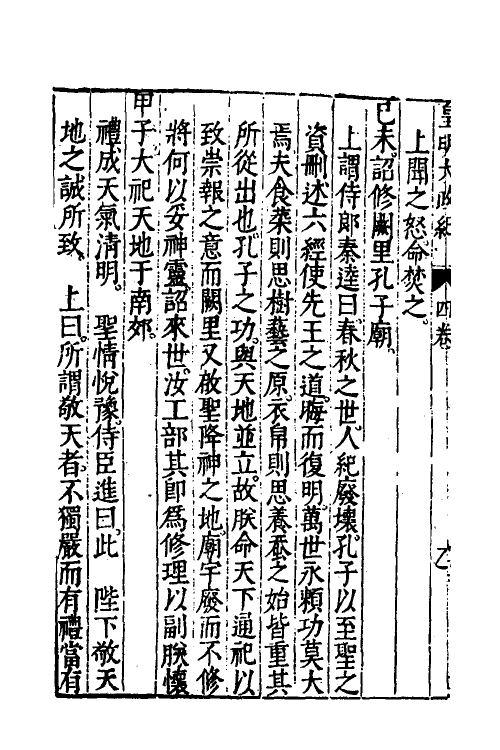 皇明大政紀 四卷
上聞之怒命焚之。
己未。詔修闕里孔子廟。
上謂侍郎秦逵曰。春秋之世。人紀廢壞。孔子以至聖之
資刪述六經使先王之道。晦而復明。萬世永賴功莫大
焉夫食粢則思樹藝之原。衣帛則思養蚕之始皆重其
所從出也。孔子之功。與天地並立。故朕命天下通祀以
致崇報之意而闕里又啟聖降神之地。廟宇廢而不修
將何以妥神靈。詔來世。汝工部其即爲修理以副朕懷
甲子。大祀天地于南郊。
禮成天氣清明。 聖情悅豫。侍臣進曰。此 陛下敬天
地之誠所致。 上曰。所謂敬天者。不獨嚴而有禮當有